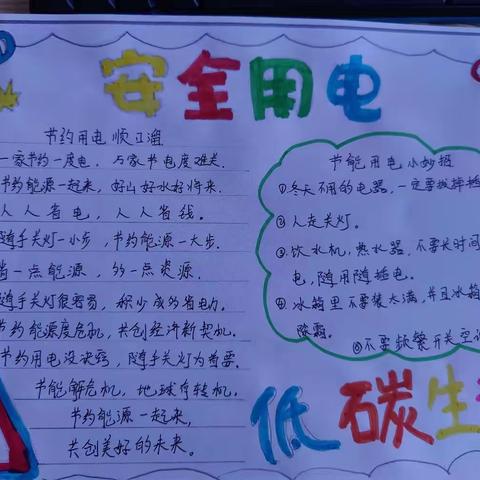 安全用电
节约用电顺口溜
一家节约一度电，万家节电度难关.
节约能源一起来，好山好水好将来.
人人省电，人人省钱。
随手关灯一小步，节约能源一大步.
省一点能源，约一点资源.
随手关灯很容易，积少成多省电力.
节约能源度危机，共创经济新契机.
节约用电没诀窍，随手关灯为首要.
节能解危机，地球有转机.
节约能源一起来，
共创美好的未来。
节能用电小妙招
①冬天不用的电器，一定要拔掉插
②人走关灯。
③饮水机，热水器，不要长时间
电，随用随插电。
④冰箱里不要装太满，并且冰箱
除霜。
⑤不要频繁开关空
低碳生